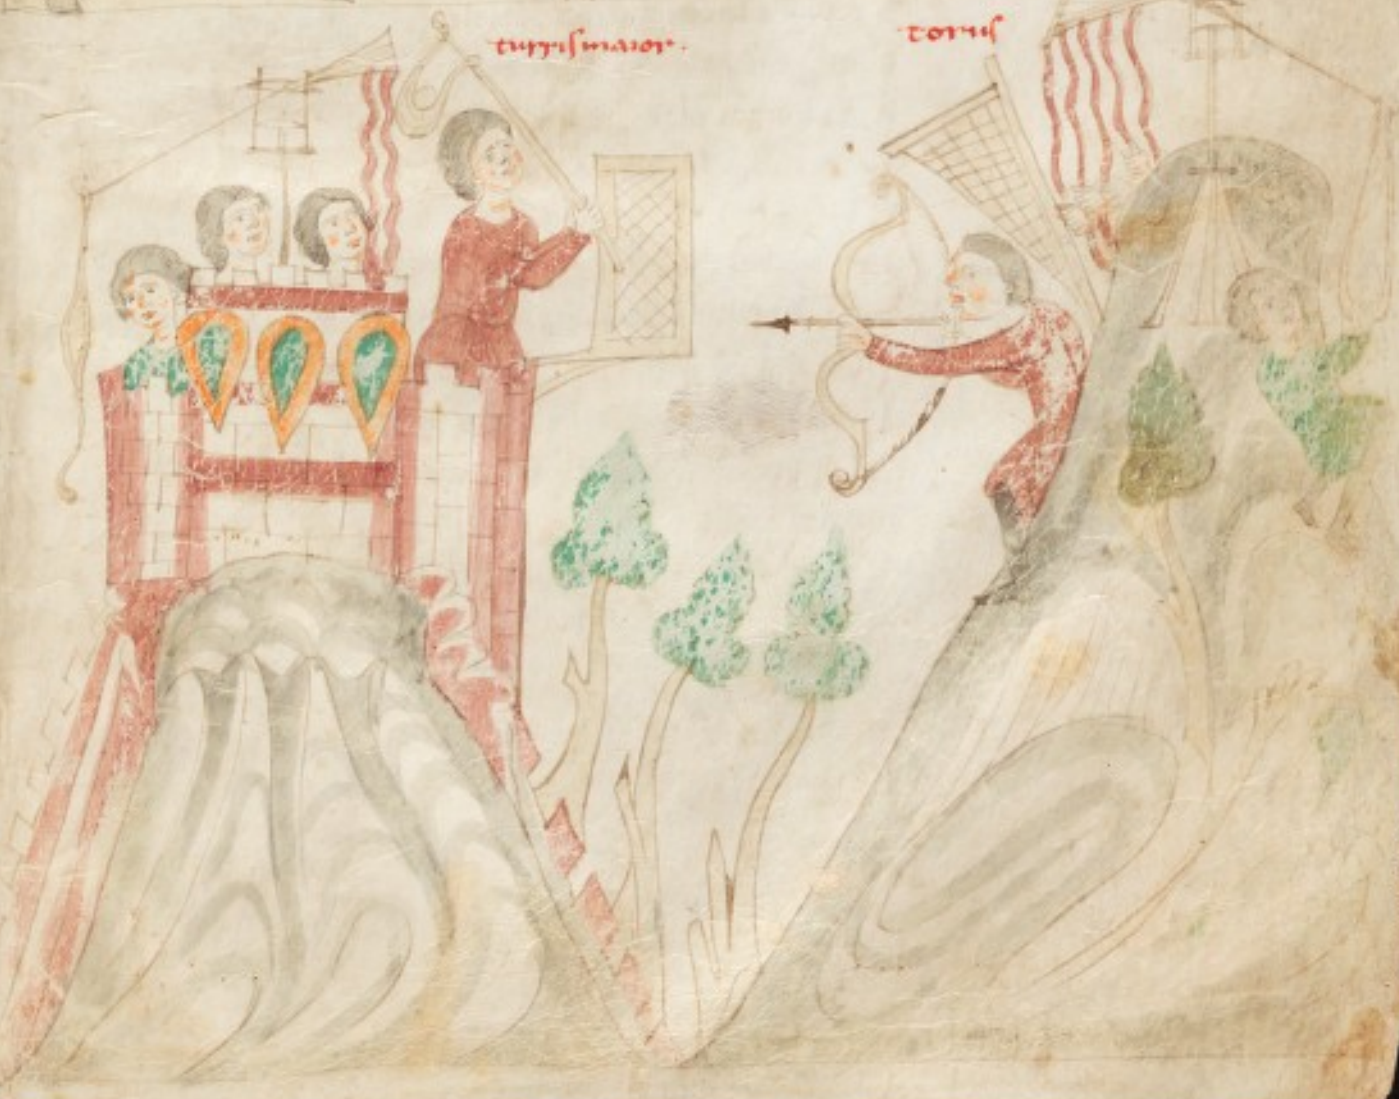 turrismaior.
torus